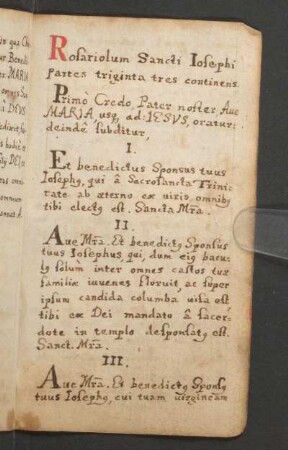 in quą Chr
ur Benedi
er MARIA
mnia So
i DEUS
Rosariolum Sancti Iosephi
partes triginta tres continens.
Primò Credo, Pater noster Aue
MARIA usq, ad: IESUS, oratur:
deindè subditur,
I.
Et benedictus Sponsus tuus
Iosephq, qui â Sacrosancta Trini-
tate ab æterno ex uiris omnibq
tibi electq est. Sancta Mra.
II.
Aue Mra. Et benedictq Sponsus
tuus Iosephus, qui, dum eiq bacu-
lq solùm inter omnes castos tuæ
familiæ iuuenes floruit, ac super
ipsum candida columba uisa est
tibi ex Dei mandato â sacer-
dote in templo desponsatq est.
Sanct. Mra.
III.
Aue Mra. Et benedictq Sponsq
tuus Iosephq, cui tuam uirgineam